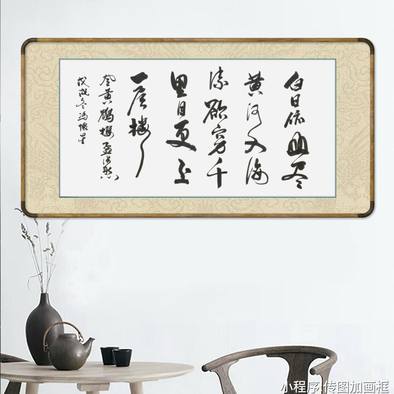 白日依山尽
黄河入海
流欲穷千
里目更上
一层楼
登黄鹤楼孟浩然
戊戌冬冯
小程序:传图加画框